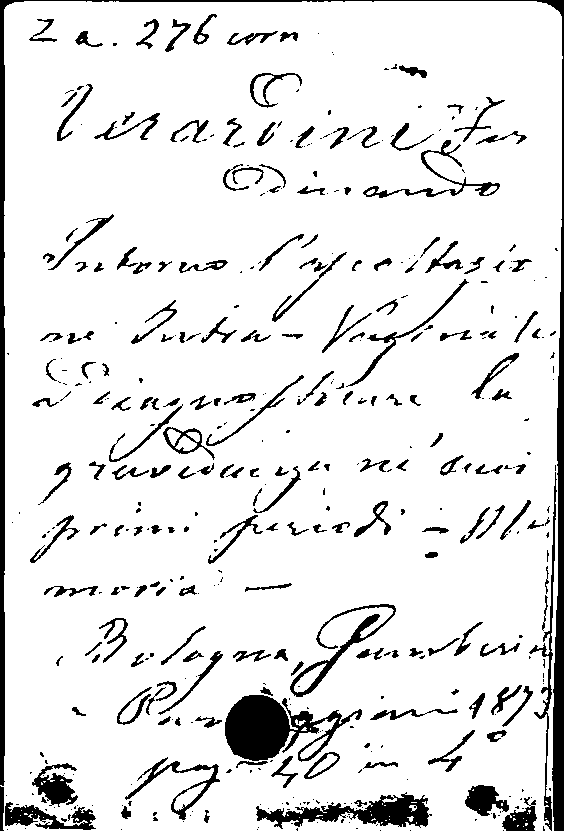 Z a. 276 corn
Verardini Fer
dinando
Intorno l'ascoltazio
ne Intra-Vaginale
Diagnosticare la
gravidanza ne' suoi
primi periodi - Me
moria —
Bologna, Gamberin
- Parmeggiani 1873
pag. 40 in 4°